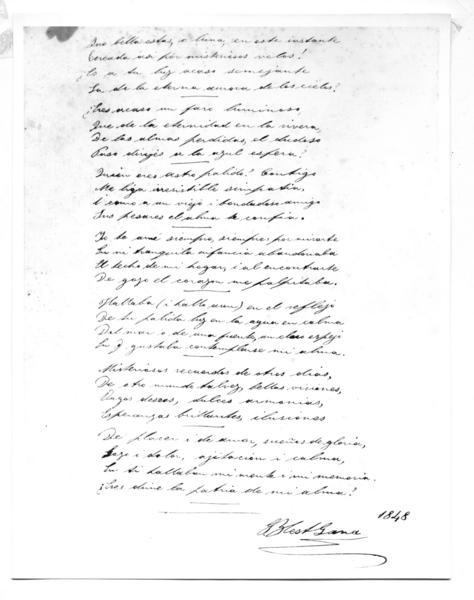 Que bella estas, o luna, en este instante
Cercada asi por misteriosos velos!
Es a tu luz acaso semejante
La de la eterna aurora de los cielos?
¿Eres acaso un faro luminoso
Que de la eternidad en la rivera,
De las almas perdidas, el dudoso
Paso dirijes a la azul esfera?
Quien eres astro palido? Contigo
Me liga irresistible simpatia,
I como a un viejo i bondadoso amigo
Sus pesares el alma te confia.
Yo te amé siempre, siempre por mirarte
En mi tranquila infancia abandonaba
El techo de mi hogar, i al encontrarte
De gozo el corazon me palpitaba.
Hallaba (i halla aun) en el reflejo
De tu palida luz en la agua en calma
Del mar o de una fuente, un claro espejo
En q. gustaba contemplarse mi alma.
Misteriosos recuerdos de otros dias,
De otro mundo talvez, bellas visiones,
Vagos deseos, dulces armonias,
Esperanzas brillantes, ilusiones
De placer i de amor, sueños de gloria,
Gozo i dolor, agitacion i calma,
En ti hallaban mi mente i mi memoria.
¿Eres dime la patria de mi alma?
1848
G Blest Gana